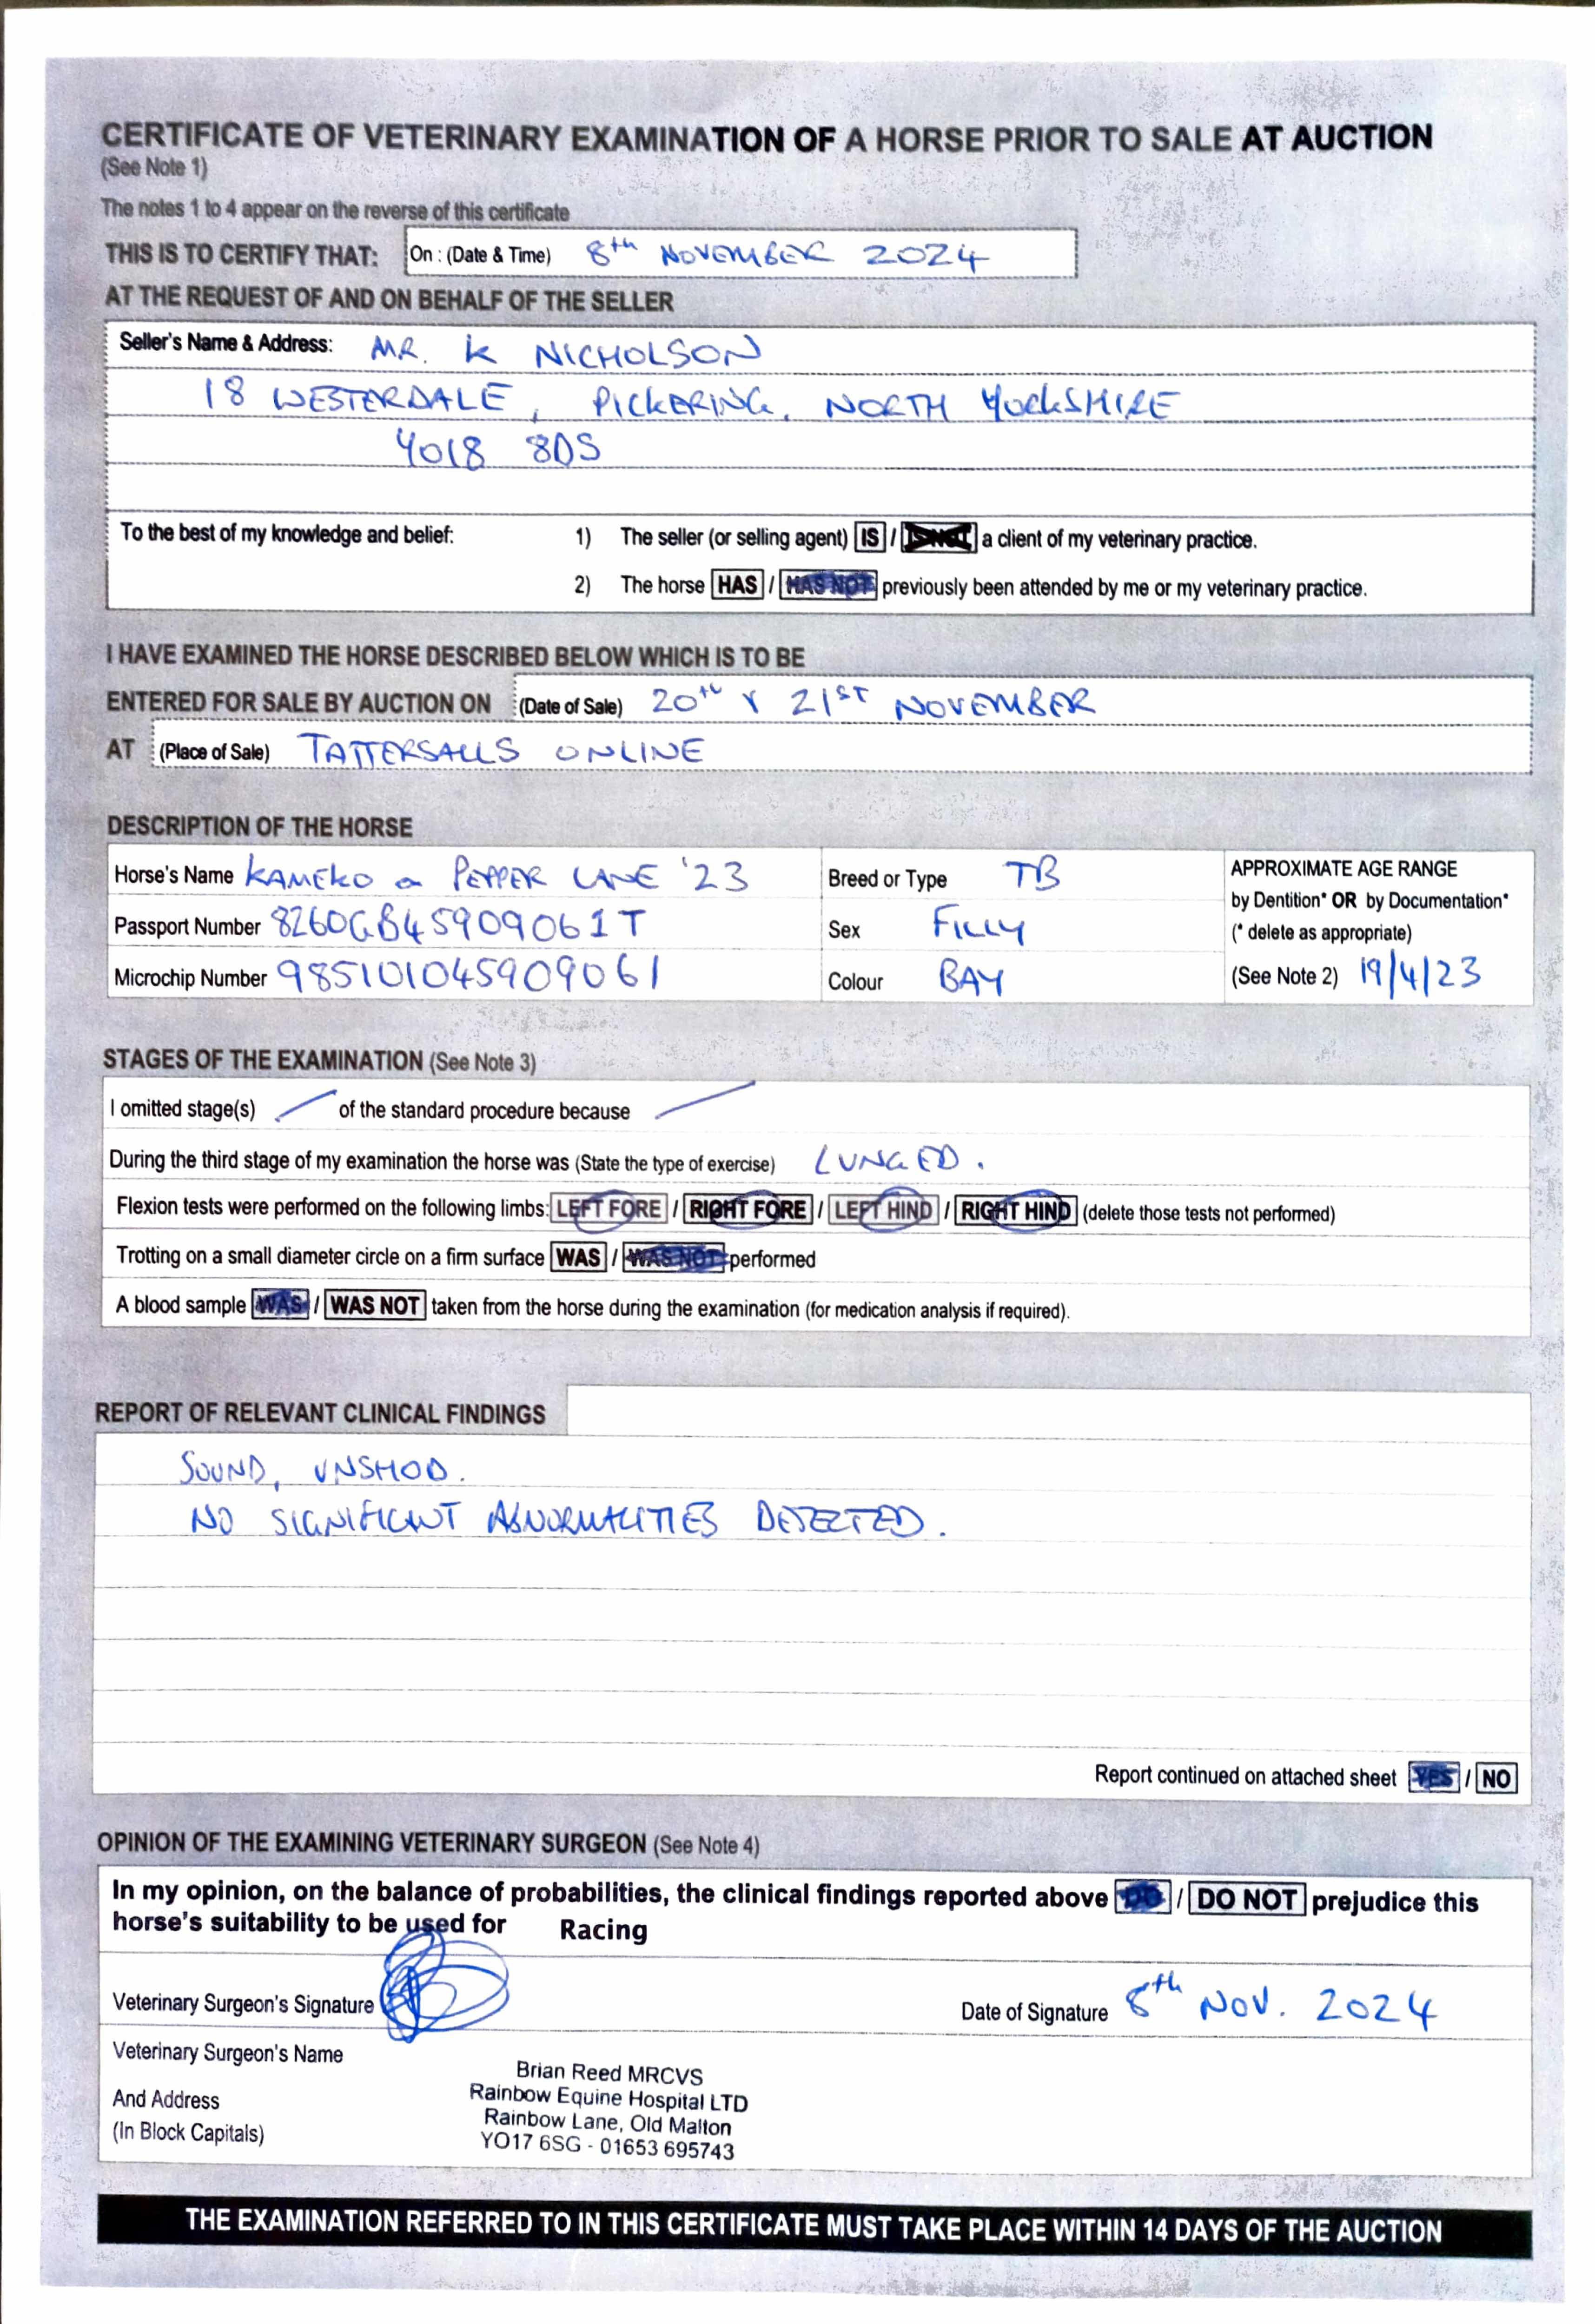 CERTIFICATE OF VETERINARY EXAMINATION OF A HORSE PRIOR TO SALE AT AUCTION
(See Note 1)
The notes 1 to 4 appear on the reverse of this certificate
THIS IS TO CERTIFY THAT: On : (Date & Time) 8th NOVEMBER 2024
AT THE REQUEST OF AND ON BEHALF OF THE SELLER
Seller's Name & Address: MR. K NICHOLSON
18 WESTERDALE, PICKERING, NORTH YORKSHIRE
YO18 8DS
To the best of my knowledge and belief: 1) The seller (or selling agent) IS / IS NOT a client of my veterinary practice.
2) The horse HAS / HAS NOT previously been attended by me or my veterinary practice.
I HAVE EXAMINED THE HORSE DESCRIBED BELOW WHICH IS TO BE
ENTERED FOR SALE BY AUCTION ON (Date of Sale) 20th & 21ST NOVEMBER
AT (Place of Sale) TATTERSALLS ONLINE
DESCRIPTION OF THE HORSE
Horse's Name KAMEKO PEPPER LANE '23 Breed or Type TB APPROXIMATE AGE RANGE
by Dentition* OR by Documentation*
Passport Number 8260GB45909061T Sex FILLY (* delete as appropriate)
Microchip Number 985101045909061 Colour BAY (See Note 2) 19/4/23
STAGES OF THE EXAMINATION (See Note 3)
I omitted stage(s) / of the standard procedure because /
During the third stage of my examination the horse was (State the type of exercise) LUNGED.
Flexion tests were performed on the following limbs: LEFT FORE / RIGHT FORE / LEFT HIND / RIGHT HIND (delete those tests not performed)
Trotting on a small diameter circle on a firm surface WAS / WAS NOT performed
A blood sample WAS / WAS NOT taken from the horse during the examination (for medication analysis if required).
REPORT OF RELEVANT CLINICAL FINDINGS
SOUND, UNSHOD.
NO SIGNIFICANT ABNORMALITIES DETECTED.
Report continued on attached sheet YES / NO
OPINION OF THE EXAMINING VETERINARY SURGEON (See Note 4)
In my opinion, on the balance of probabilities, the clinical findings reported above DO / DO NOT prejudice this
horse's suitability to be used for Racing
Veterinary Surgeon's Signature Date of Signature 8th NOV. 2024
Veterinary Surgeon's Name
And Address
(In Block Capitals)
Brian Reed MRCVS
Rainbow Equine Hospital LTD
Rainbow Lane, Old Malton
YO17 6SG - 01653 695743
THE EXAMINATION REFERRED TO IN THIS CERTIFICATE MUST TAKE PLACE WITHIN 14 DAYS OF THE AUCTION